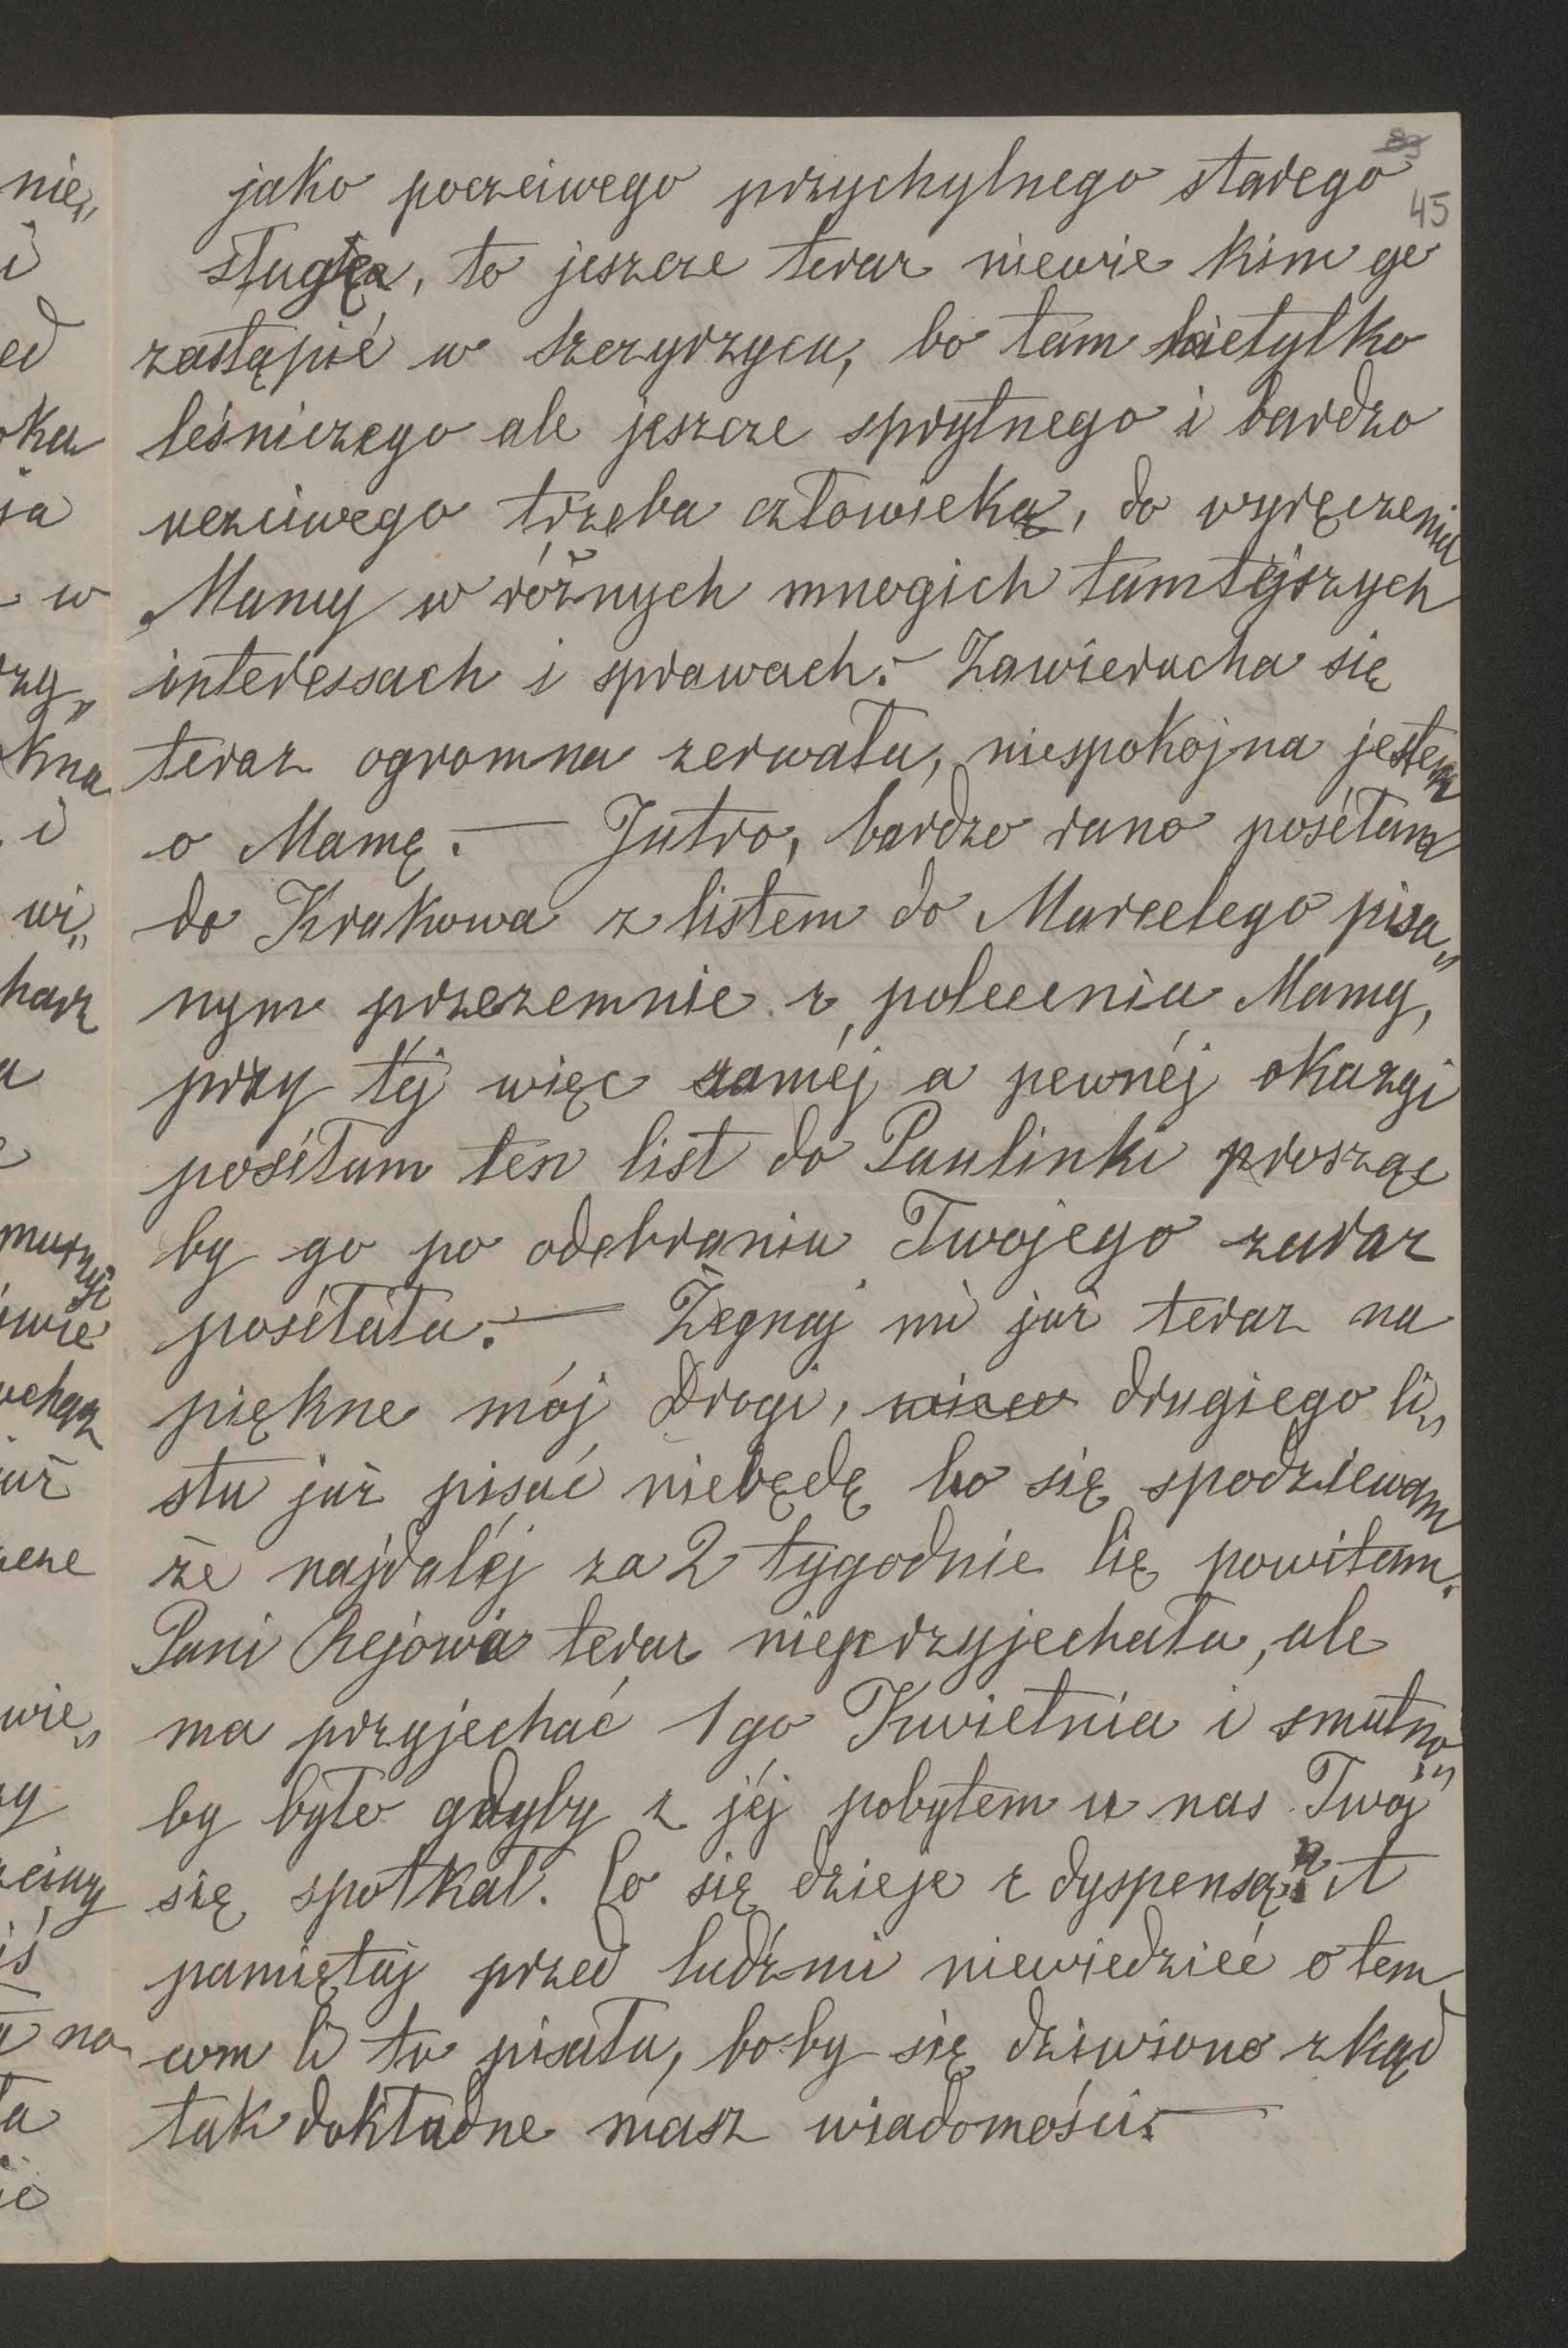 83
45
nie„
i
ed
oka
ja
w
rzy„
kna
i
wi„
harz
a
e
iwie
uż
wie„
zy
iś
a na
ta
ie
jako poczciwego przychylnego starego
sługę, to jeszcze teraz niewie kim go
zastąpić w Szczyrzycu, bo tam nietylko
leśniczego ale jeszcze sprytnego i bardzo
uczciwego trzeba człowieka, do wyręczenia
Mamy w różnych mnogich tamtéjszych
interessach i sprawach.— Zawierucha się
teraz ogromna zerwała, niespokojna jestem
o Mamę.— Jutro, bardzo rano poséłam
do Krakowa z listem do Marcelego pisa„
nym przezemnie z polecenia Mamy,
przy téj więc saméj a pewnéj okazyi
poséłam ten list do Paulinki prosząc
by go po odebraniu Twojego zaraz
poséłała.— Żegnaj mi już teraz na
piękne mój Drogi, drugiego li„
stu już pisać niebędę bo się spodziewam
że najdaléj za 2 tygodnie Cię powitam.
Pani Rejowa teraz nieprzyjechała, ale
ma przyjechać 1go Kwietnia i smutno„
by było gdyby z jéj pobytem u nas Twój
się spotkał. Co się dzieje z dyspensą? A
pamiętaj przed ludźmi niewiedzieć o tem
com Ci tu pisała, bo-by się dziwiono zkąd
tak dokładne masz wiadomości.—